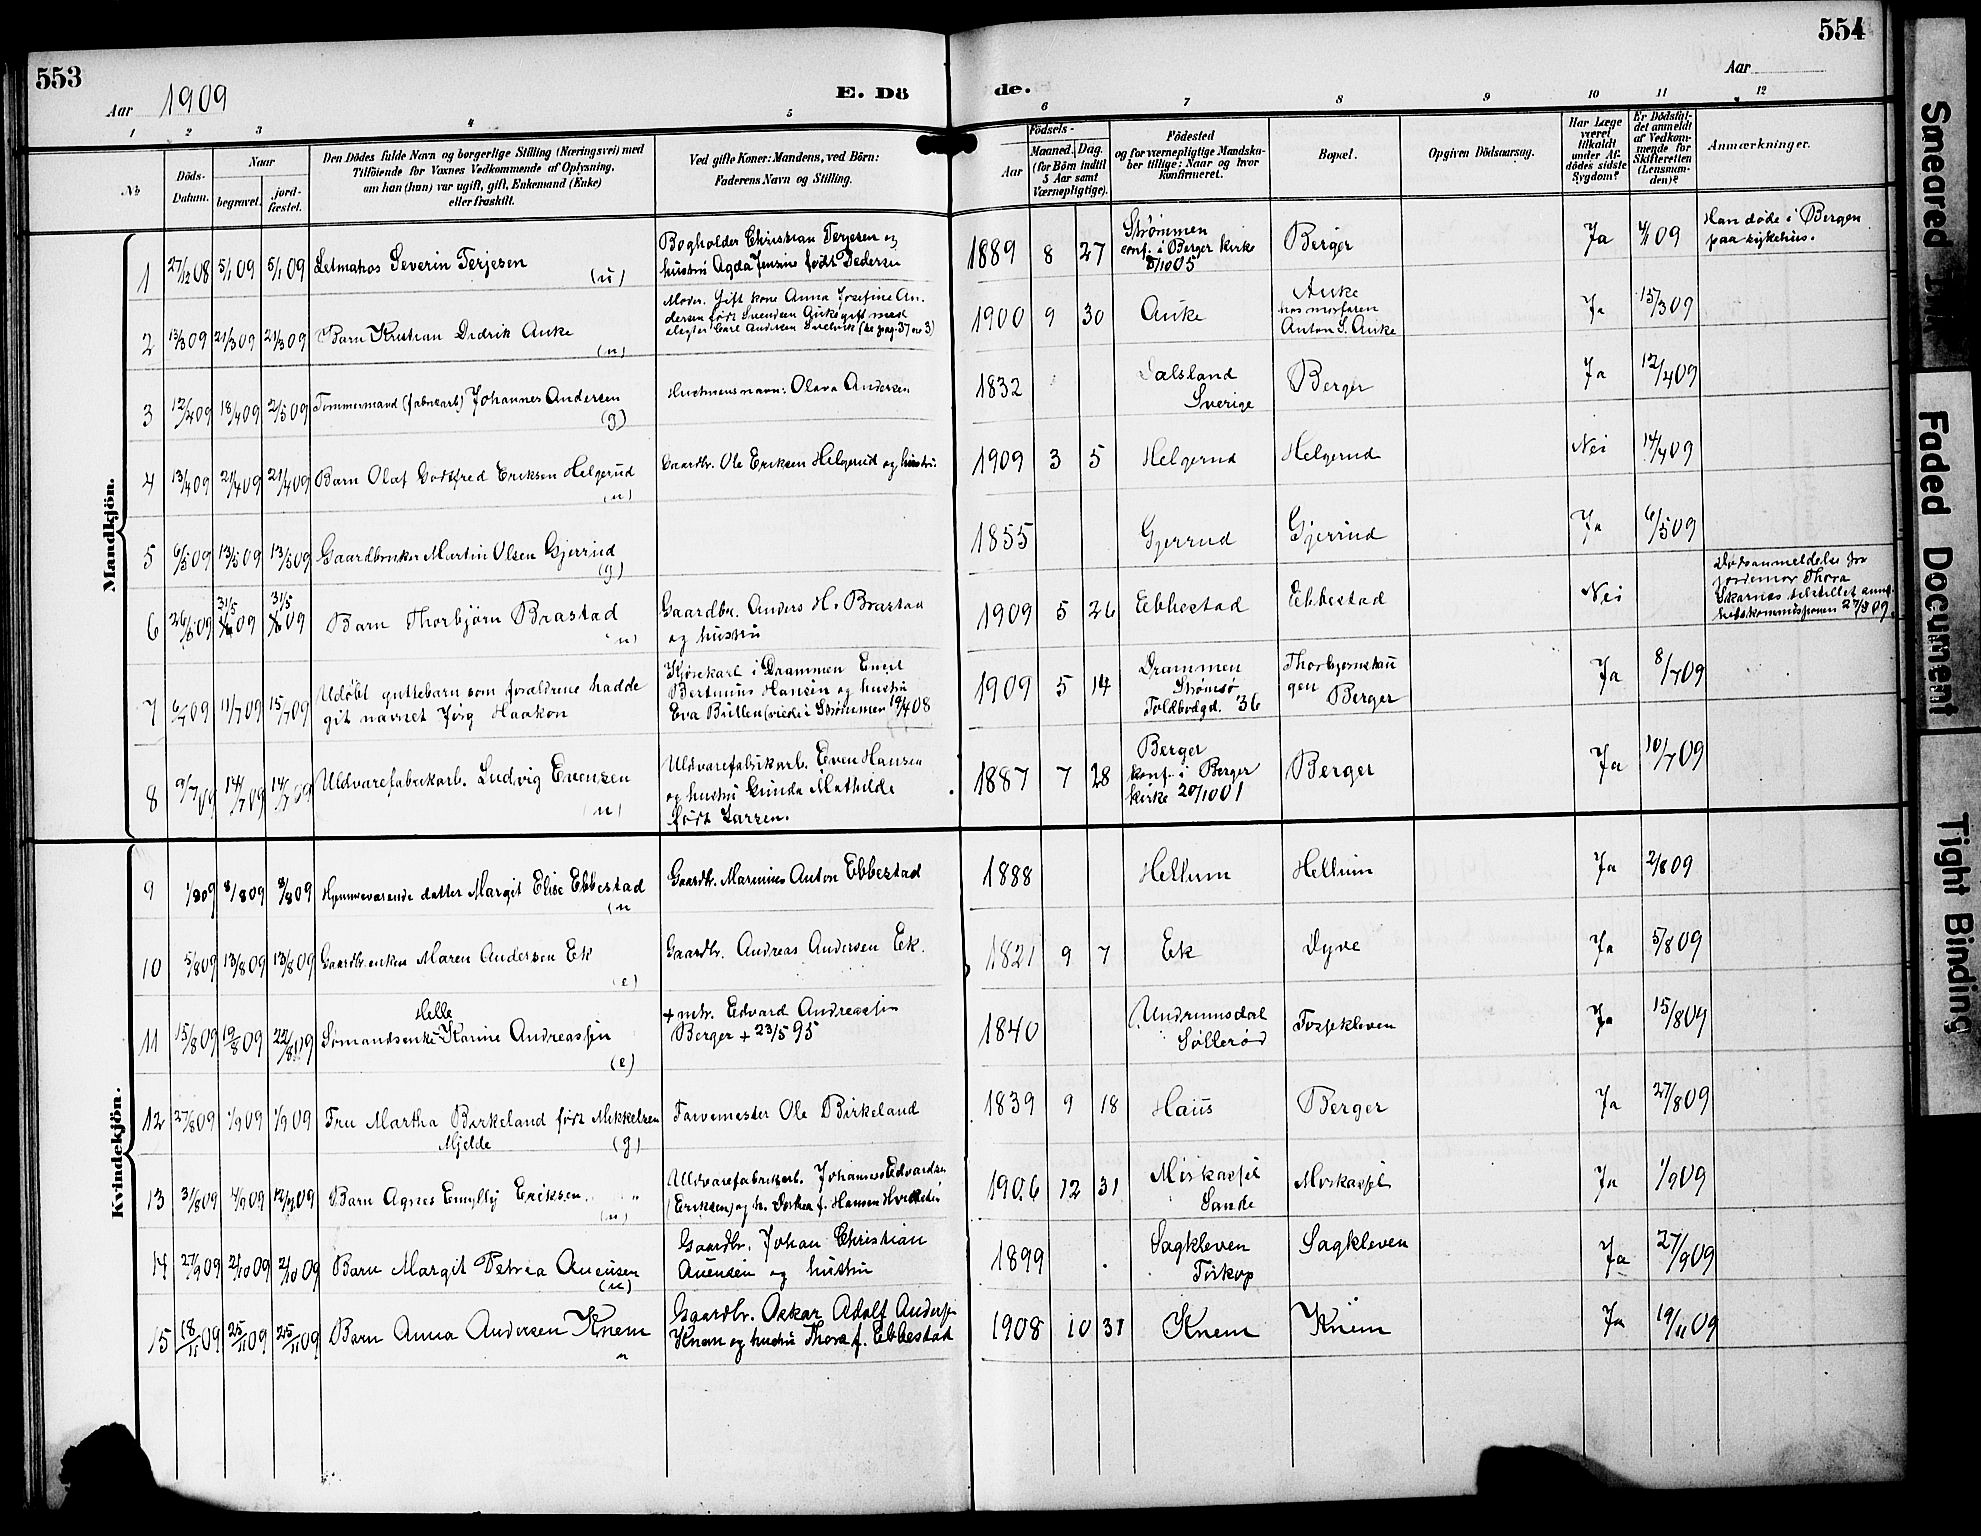 553
Aar 1909
E. Dö
de.
Aar
554
1 2 3 4 5 6 7 8 9 10 11 12
No
Döds-Datum.
Naar
begravet.
jord-fæstet.
Den Dödes fulde Navn og borgerlige Stilling (Næringsvei) med
Tilföiende for Voxnes Vedkommende af Oplysning,
om han (hun) var ugift, gift, Enkemand (Enke)
eller fraskilt.
Ved gifte Koner: Mandens, ved Börn:
Faderens Navn og Stilling.
Födsels-
Aar
Maaned. Dag.
(for Börn indtil
5 Aar samt
Værnepligtige).
Födested
og for værnepligtige Mandska-
ber tillige: Naar og hvor
konfirmeret.
Bopæl.
Opgiven Dödsaarsag.
Har Læge
været
tilkaldt
under Af-
dödes sidste
Sygdom?
Er Dödsfal-
det anmeldt
af Vedkom-
mende for
Skifteretten
(Lensman-
den)?
Anmærkninger.
Mandkjön.
1 27/12 08 5/1 09 5/1 09 Severin Terjesen (u)
Bogholder Christian Terjesen og
hustru Agda Jensine født Pedersen
1889 8 27
Strømmen
conf. i Berger kirke
8/10 05
Berger Ja 4/1 09
Han døde i Bergen
paa sykehus.
2 13/3 09 21/3 09 21/3 09 Barn Kristian Didrik Auke (u)
Moder. Gift kone Anna Josefine An-
dersen født Svendsen Auke gift med
slagter Carl Andersen Svelvik (se pag. 37 no 3)
1900 9 30 Auke
Auke
hos morfaren
Anton S. Auke
Ja 15/3 09
3 12/4 09 18/4 09 2/5 09 Tømmermand (fabrikarb) Johannes Andersen (g)
Hustruens navn: Olava Andersen
1832
Dalsland
Sverige
Berger Ja 12/4 09
4 13/4 09 21/4 09 21/4 09 Barn Olaf Godtfred Eriksen Helgerud (u)
Gaardbr. Ole Eriksen Helgerud og hustru
1909 3 5 Helgerud Helgerud Nei 14/4 09
5 6/5 09 13/5 09 13/5 09 Gaardbruker Martin Olsen Gjerrud (g)
1855 Gjerrud Gjerrud Ja 6/5 09
6 26/5 09 31/5 09 31/5 09 Barn Thorbjørn Brastad (u)
Gaardbr. Anders H. Brastad
og hustru
1909 5 26 Ebbestad Ebbestad Nei
Dødsanmeldelse fra
jordemor Thora
Skarnes tilstillet sund-
hetskommisjonen 27/5 09.
7 6/7 09 11/7 09 15/7 09 Udøbt guttebarn som forældrene hadde
git navnet Jørg Haakon
Kjørekarl i Drammen Emil
Bertinius Hansen og hustru
Eva Britten (viede i Strømmen 19/4 08
1909 5 14
Drammen
Strømsø
Toldbodgd. 36
Thorbjørnskau
gen Berger
Ja 8/7 09
8 9/7 09 14/7 09 14/7 09 Uldvarefabrikarb. Ludvig Evensen (u)
Uldvarefabrikarb. Even Hansen
og hustru Gunda Mathilde
født Larsen.
1887 7 28
Berger
konf. i Berger
kirke 20/10 01
Berger Ja 10/7 09
Kvindekjön.
9 1/8 09 8/8 09 8/8 09 Hjemmeværende datter Margit Elise Ebbestad (u
Gaardbr. Marinius Anton Ebbestad
1888 Hellum Hellum Ja 2/8 09
10 5/8 09 13/8 09 13/8 09 Gaardbr.enken Maren Andersen Ek (e)
Gaardbr. Andreas Andersen Ek.
1821 9 7 Ek Dyve Ja 5/8 09
Helle
11 15/8 09 19/8 09 22/8 09 Sømandsenke Karine Andreassen (e)
+ mtr. Edvard Andreassen
Berger + 23/5 95
1840
Undrumsdal
Søllerød
Fossekleven Ja 15/8 09
12 27/8 09 1/9 09 1/9 09 Fru Martha Birkeland født Mikkelsen
Mjelde (g)
Farvemester Ole Birkeland
1839 9 18 Haus Berger Ja 27/8 09
13 31/8 09 4/9 09 12/9 09 Barn Agnes Emylly Eriksen (u)
Uldvarefabrikarb. Johannes Edvardsen
(Eriksen) og h. Dorthea f. Hansen
1906 12 31
Sande
Ja 1/9 09
14 27/9 09 2/10 09 2/10 09 Barn Margit Petria Auensen (u)
Gaardbr. Johan Christian
Auensen og hustru
1899
Sagkleven
Forkop
Sagkleven Ja 27/9 09
15 18/11 09 25/11 09 25/11 09 Barn Anna Andersen Knem u
Gaardbr. Oskar Adolf Andersen
Knem og hustru Thora f. Ebbestad
1908 10 31 Knem Knem Ja 19/11 09
Smeared
Faded Document
Tight Binding